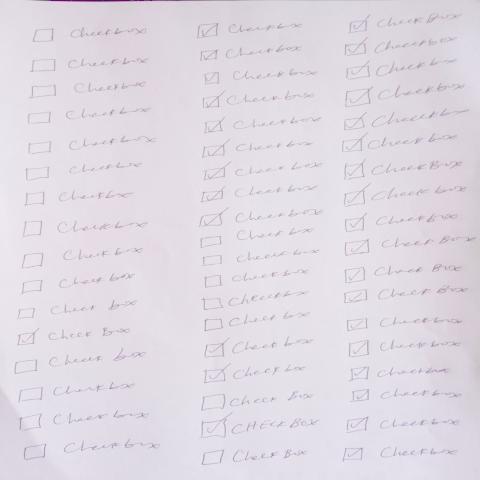 Checkbox
Checkbox
Checkbox
Checkbox
Checkbox
Checkbox
Checkbox
Checkbox
Check box
Check box
Check box
Check Box
Check box
Checkbox
Checkbox
Checkbox
Checkbox
Checkbox
Checkbox
Checkbox
Checkbox
Checkbox
Check box
Check box
Check box
Check box
Checkbox
Check box
Checkbox
Check box
Check box
Check box
Check Box
CHECKBOX
Check Box
Check Box
Checkbox
Check box
Checkbox
Checkbox
Checkbox
CheckBox
Check box
Checkbox
Check Box
Check Box
Check Box
Checkbox
Checkbox
Checkbox
Checkbox
Checkbox
Checkbox